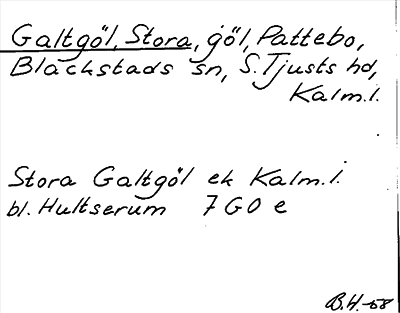 Galtgöl, Stora, göl, Pattebo,
Blackstads sn, S. Tjusts hd,
Kalm.l.
Stora Galtgöl ek Kalm.l.
bl. Hultserum 7 G0 e
B.H.-58